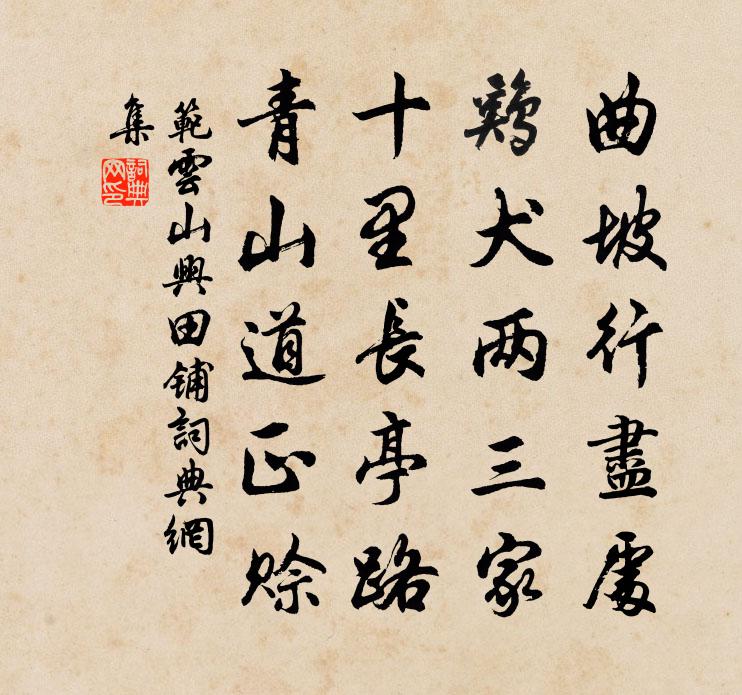 曲坡行盡處
鷄犬两三家
十里長亭路
青山道正賒
範雲山興田鋪詞典網
集
詞典网印